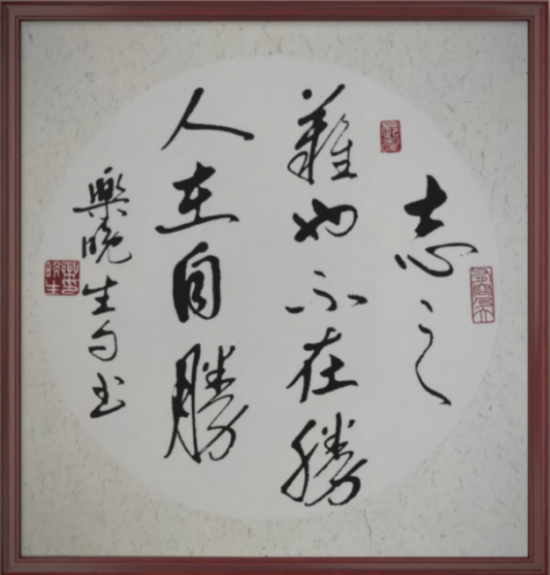 志之
難也不在勝
人在自勝
樂晚生句書